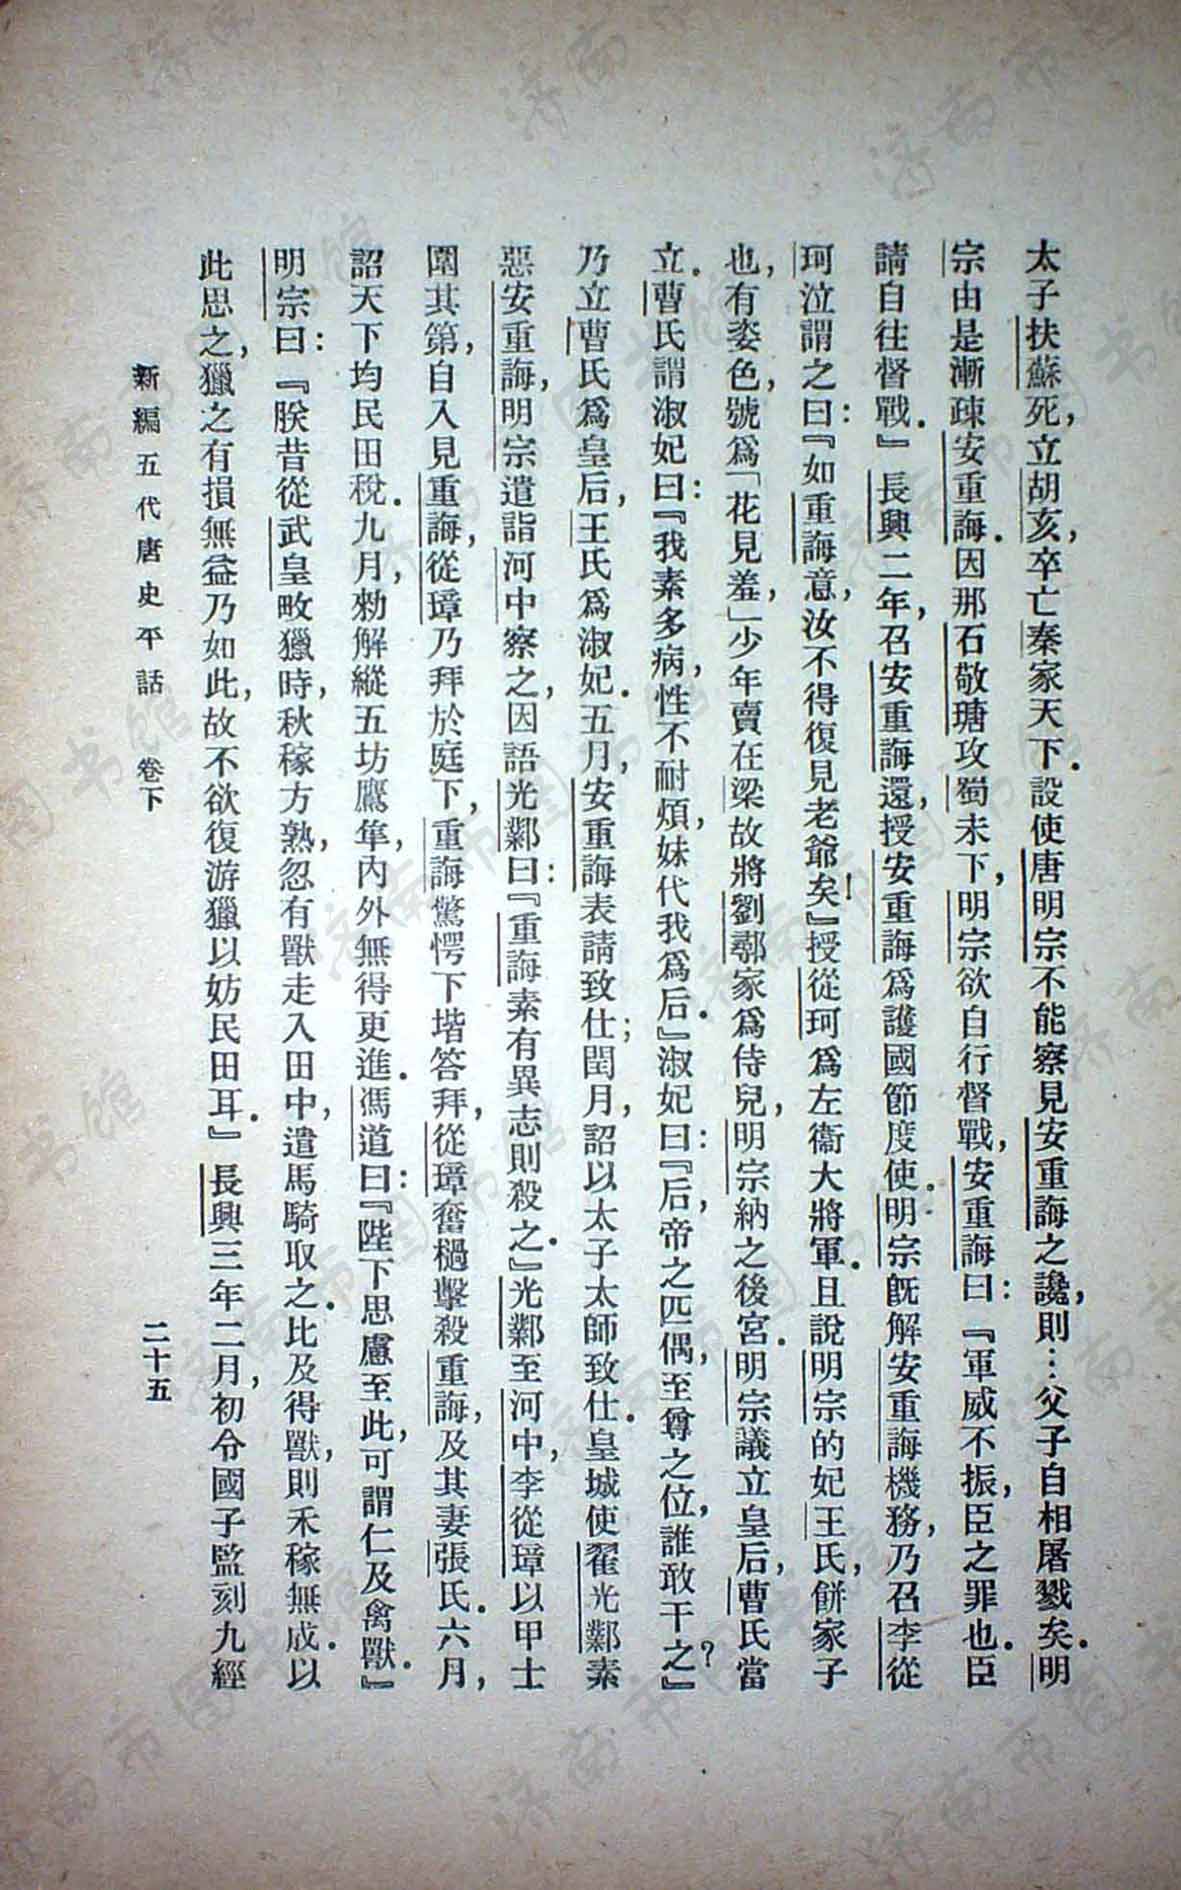 太子扶蘇死，立胡亥，卒亡秦家天下．設使唐明宗不能察見安重誨之讒，則…父子自相屠戮矣．明
宗由是漸疎安重誨．因那石敬瑭攻蜀未下，明宗欲自行督戰，安重誨曰：『軍威不振，臣之罪也．臣
請自往督戰．』長興二年，召安重誨還，授安重誨爲護國節度使．明宗旣解安重誨機務，乃召李從
珂泣謂之曰：『如重誨意，汝不得復見老爺矣！』授從珂爲左衞大將軍．且說明宗的妃王氏，餅家子
也，有姿色，號爲「花見羞」，少年賣在梁故將劉鄩家爲侍兒，明宗納之後宮．明宗議立皇后，曹氏當
立．曹氏謂淑妃曰：『我素多病，性不耐煩，妹代我爲后．』淑妃曰：『后，帝之匹偶，至尊之位，誰敢干之？』
乃立曹氏爲皇后，王氏爲淑妃．五月，安重誨表請致仕；閏月，詔以太子太師致仕．皇城使翟光鄴素
惡安重誨，明宗遣詣河中察之，因語光鄴曰：『重誨素有異志則殺之．』光鄴至河中，李從璋以甲士
圍其第，自入見重誨，從璋乃拜於庭下，重誨驚愕下堦答拜，從璋奮檛擊殺重誨，及其妻張氏．六月，
詔天下均民田稅．九月，勑解縱五坊鷹隼，內外無得更進．馮道曰：『陛下思慮至此，可謂仁及禽獸．』
明宗曰：『朕昔從武皇畋獵時，秋稼方熟，忽有獸走入田中，遣馬騎取之．比及得獸，則禾稼無成．以
此思之，獵之有損無益乃如此，故不欲復游獵以妨民田耳．』長興三年二月，初令國子監刻九經
新編五代唐史平話　卷下　二十五
濟南市图书馆